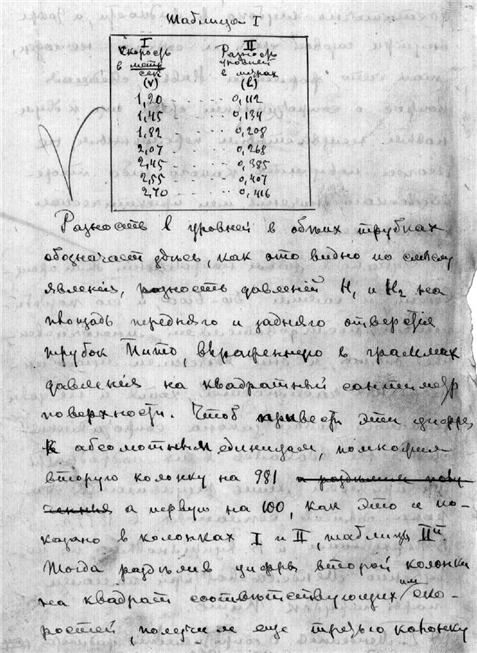 Таблица I
I II
Скорость Разность
в метр уровней
сек в метрах
(v) (h)
1,20 .... 0,112
1,45 .... 0,134
1,82 .... 0,208
2,07 .... 0,268
2,45 .... 0,385
2,55 .... 0,407
2,70 .... 0,416
Разность уровней в обоих трубках
обозначает здесь, как это видно по
явления, разность давлений H1 и H2 на
площадь переднего и заднего отверстия
трубок Пито, выраженную в граммах
давления на квадратный сантиметр
поверхности. Чтоб привести эти цифры
к абсолютным единицам, помножил
вторую колонку на 981
а первую на 100, как это и по-
казано в колонках I и II, таблицы IIй
Тогда разделив цифры второй колонки
на квадрат соответствующих им ско-
ростей, получил еще третью колонку